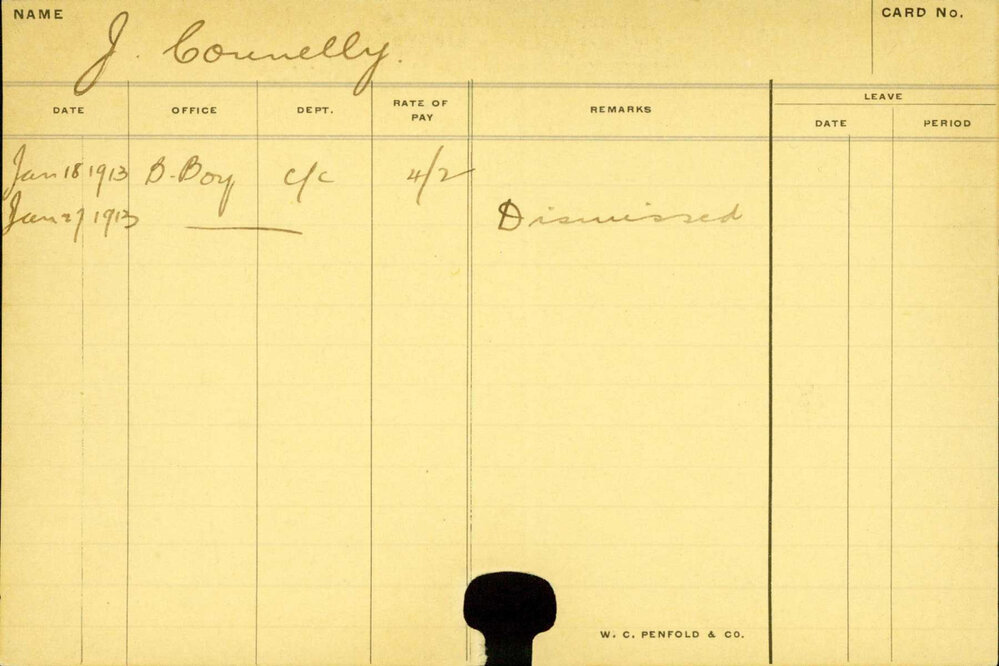 NAME
CARD No.
J. Connelly.
DATE OFFICE DEPT. RATE OF PAY REMARKS LEAVE
DATE PERIOD
Jan 18 1913 B-Boy c/c 4/2
Jan 27 1913 Dismissed
W. C. PENFOLD & CO.